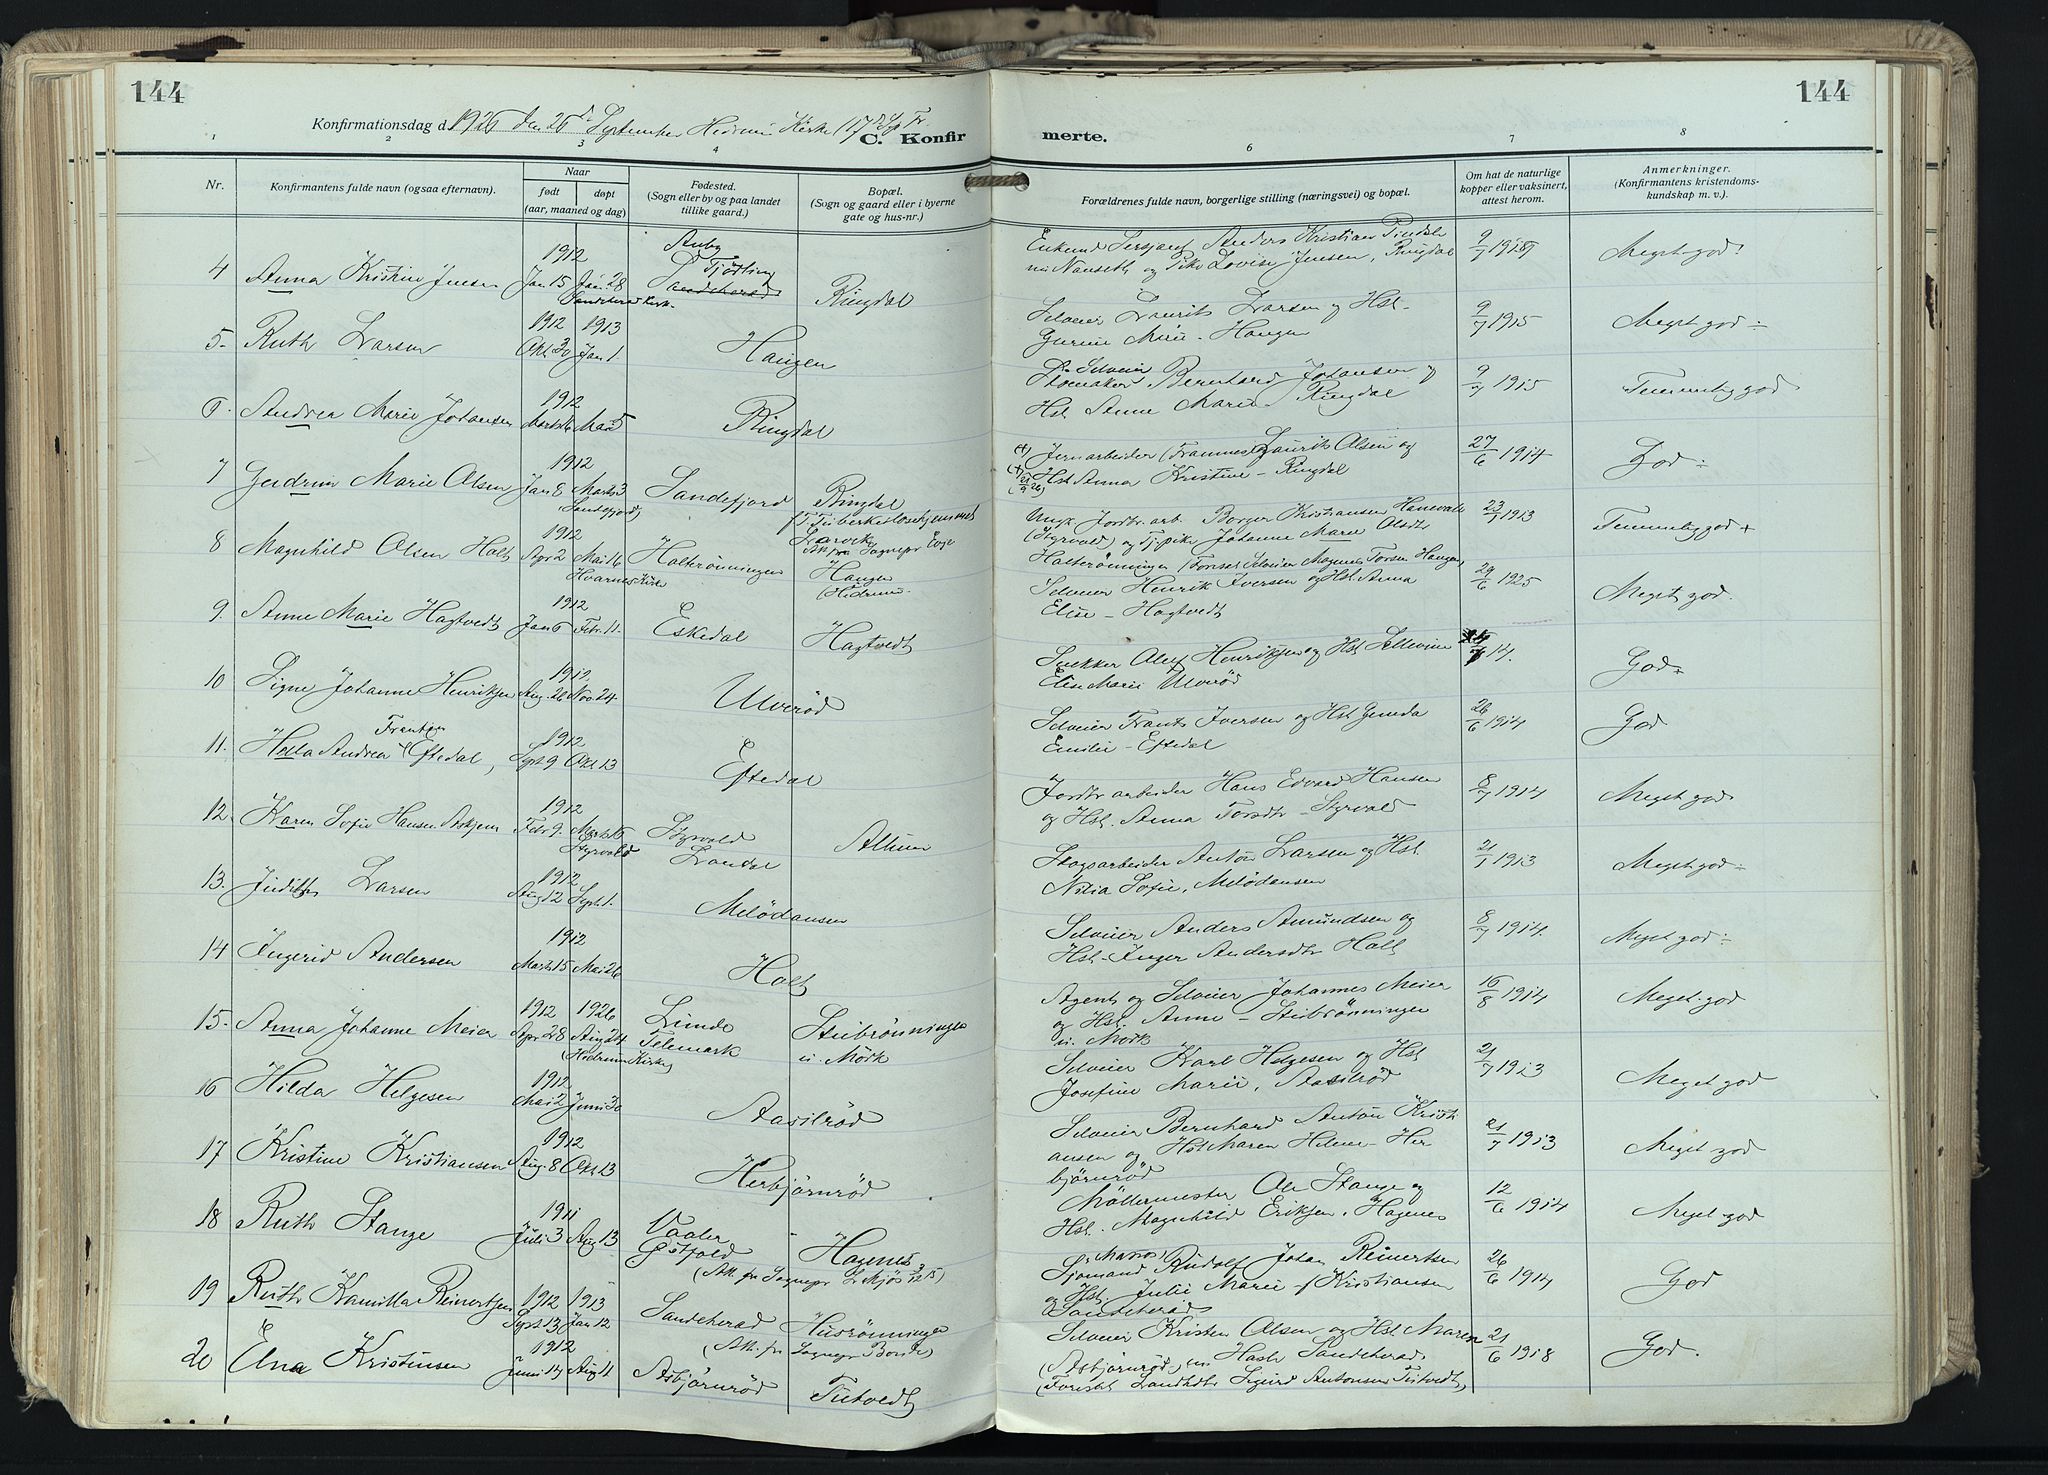 144
144
Konfirmationsdag d. 1926 den 26de September Hedrum Kirke
C. Konfir
merte.
1 2 3 4 6 7 8
Nr.
Konfirmantens fulde navn (ogsaa efternavn).
Naar
født døpt
(aar, maaned og dag)
Fødested.
(Sogn eller by og paa landet
tillike gaard.)
Bopæl.
(Sogn og gaard eller i byerne
gate og hus-nr.)
Forældrenes fulde navn, borgerlige stilling (næringsvei) og bopæl.
Om hat de naturlige
kopper eller vaksinert,
attest herom.
Anmerkninger.
(Konfirmantens kristendoms-
kundskap m. v.).
1912
4 Anna Kristine Jensen Jan 15 Jan. 28 Ringdal
Sandeherad Kirke
Enkemd Anders Kristian
og Pike Lovise Jensen, Ringdal 9/7 Meget god.
1912 1913
5. Ruth Larsen Okt 30 Jan 1. Haugen
Selveier Laurits Larsen og Hst.
Gurine Marie - Haugen 9/7 1915 Meget god ÷
1912
6. Andrea Marie Johansen Marts 16 Mai 5 Ringdal
Selveier
Skomaker Bernhard Johansen og
Hst. Anne Marie - Ringdal 9/7 1915 Temmelig god
1912
7 Gudrun Marie Olsen Jan 8 Marts 3 Sandefjord Ringdal
(Sandefjord)
Jernarbeider Laurits Olsen og
Hst Anna Kristine - Ringdal 27/6 1914 God ÷
Tuberkulosehjemmet
Larvik
1912
8 Magnhild Olsen Holt Apr 2 Mai 16 Holterønningen Haugen
Hvarnes Kirke (Hedrum.
Ungk. Jordbr. arb. Borger Kristiansen
(Styrvold) og tj. pike Johanne Marie Olsdtr
Holterønningen (Forser Selveier Magnus Torsen Haugen) 23/7 1913 Temmelig god +
1912
9. Anne Marie Hagtvedt Jan 6 Febr. 11. Eskedal Hagtvedt
Selveier Henrik Iversen og Hst Anna
Elise - Hagtvedt 29/6 1925 Meget god.
1912
10 Signe Johanne Henriksen Aug. 26 Nov. 24. Ulverød
Snekker Oluf Henriksen og Hst
Elise Marie Ulverød 14. God ÷
Frantzen 1912
11. Hella Andrea Eftedal, Sept 9 Okt 13 Eftedal
Selveier Frants Iversen og Hst
Emilie - Eftedal 26/6 1914 God
1912
12. Karen Sofie Hansen Askjem Febr 9. Marts 15 Styrvold
Styrvold Lardal
Jordbr arbeider Hans Edvard Hansen
og Hst. Anna Torsdtr - Styrvold 8/7 1914 Meget god
1912
13. Judith Larsen Aug 12 Sept. 1. Melödansen
Skogsarbeider Anton Larsen og Hst.
Nilia Sofie, Melödansen 21/1 1913 Meget god ÷
1912
14 Ingerid Andersen Marts 15 Mai 26 Holt
Selveier Anders Amundsen og
Hst. Inger Andersdtr Holt 8/7 1914. Meget god ÷
1912 1926
15. Anna Johanne Meier Apr 28 Aug 24 Lunde Stubrönningen
(Hedrum Kirke) Telemark u. Mörk
Agent og Selveier Johannes Meier
og Hst. Anne - Stubrönningen
u. Mörk 16/8 1914 Meget god
1912
16 Hilda Helgesen Mai 2 Juni 30 Aasilröd
Selveier Karl Helgesen og Hst
Josefine Marie, Aasilröd 21/7 1913 Meget god
1912
17 Kristine Kristiansen Aug. 8 Okt 13 Herbjörnröd
Selveier Bernhard Anton Kristi
ansen og Hst Maren Helene - Her
björnröd 21/7 1913 Meget god
1911
18 Ruth Stange Juli 3 Aug 13 Vaaler Hagenes
Östfold
Möllermester Ole Stange og
Hst. Magnhild Eriksen, Hagenes 12/6 1914 Meget god
1912 1913
19 Ruth Kamilla Reinertsen Sept. 13 Jan 12 Sandeherad Husrönningen
Sjömand Rudolf Johan Reinertsen
og Hst. Julie Marie f. Kristiansen
Sandeherad 26/6 1914 God
1912
20 Elna Kristensen Juni 14 Aug 11 Asbjörnröd Tutvedt
Selveier Kristen Olsen og Hst. Maren
(Asbjörnröd, nu Sandeherad.
Sigurd Antonsen Tutvedt) 21/6 1918 God.